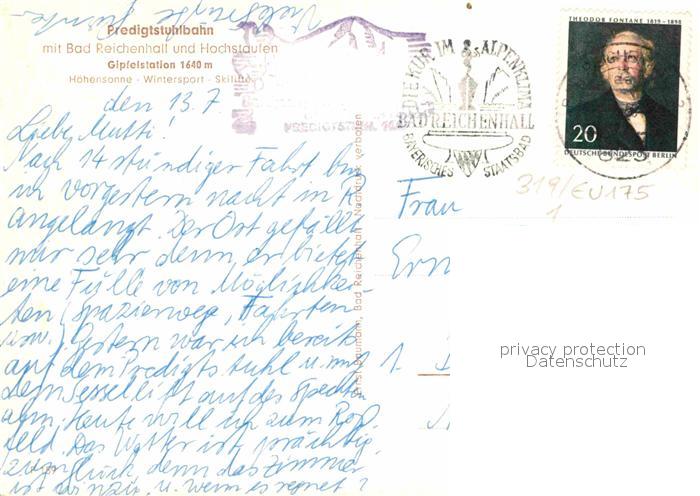 Predigtstuhlbahn
mit Bad Reichenhall und Hochstaufen
Gipfelstation 1640 m
Höhensonne - Wintersport - Skilifte
den 13.7.
Liebe Mutti!
Nach 14 stündiger Fahrt bin
ich vorgestern nacht in R.
angelangt. Der Ort gefällt
mir sehr denn er bietet
eine Fülle von Möglichkei-
ten (Spazierwege, Fahrten
usw.) Gestern war ich bereits
auf dem Predigtstuhl u. mit
dem Sessellift auf
Heute will ich zum
Das Wetter ist prächtig,
zum Glück, denn das Zimmer
ist winzig u. wenn es regnet?
PREDIGTSTUHL
DIE KUR IM ALPENKLIMA
BAD REICHENHALL
BAYERISCHES STAATSBAD
THEODOR FONTANE 1819-1898
20
DEUTSCHE BUNDESPOST BERLIN
319/EU175
1
Frau
Ern
1.
Baumann, Bad Reichenhall - Nachdruck verboten
privacy protection
Datenschutz